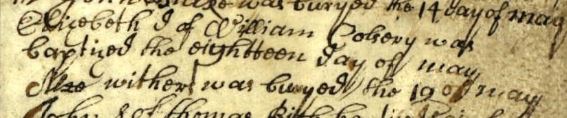 was buryed the 14 day of may
Elizebeth d of William was
baptized the eightteen day of may
withers was buryed the 19 of may
John s of thomas